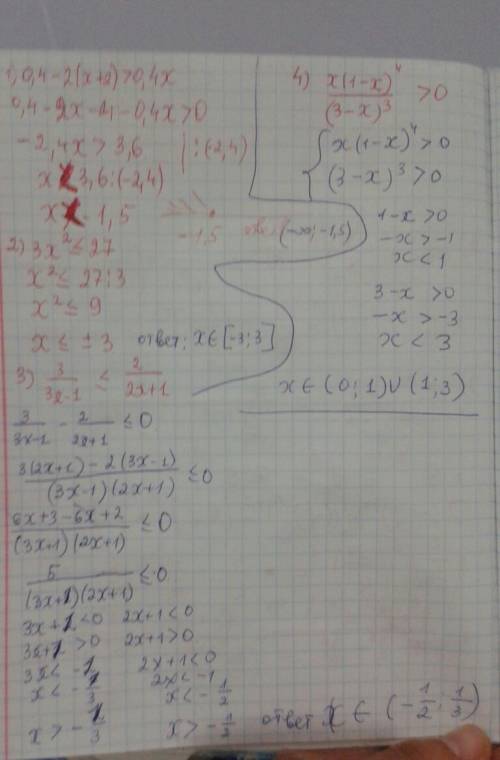 1) 0,4-2(x+2)>0,4x
0,4-2x-4-0,4x>0
-2,4x>3,6 | :(-2,4)
x<3,6:(-2,4)
x<-1,5
-1,5 ответ (-∞; -1,5)
2) 3x² ≤ 27
x² ≤ 27:3
x² ≤ 9
x ≤ ± 3 ответ: x∈[-3;3]
3) 3/(3x-1) ≤ 2/(2x+1)
3/(3x-1) - 2/(2x+1) ≤0
(3(2x+1)-2(3x-1))/((3x-1)(2x+1)) ≤0
(6x+3-6x+2)/((3x+1)(2x+1)) ≤0
5/((3x+1)(2x+1)) ≤0
3x+1<0 2x+1<0
3x+1>0 2x+1>0
3x<-1 2x+1<0
2x<-1
x<-1/3 x<-1/2
x>-1/3 x>-1/2 ответ x∈(-1/2; 1/3)
4) x(1-x)⁴/(3-x)³ >0
{ x(1-x)⁴>0
(3-x)³>0
1-x>0
-x>-1
x<1
3-x>0
-x>-3
x<3
x∈(0;1)∪(1;3)